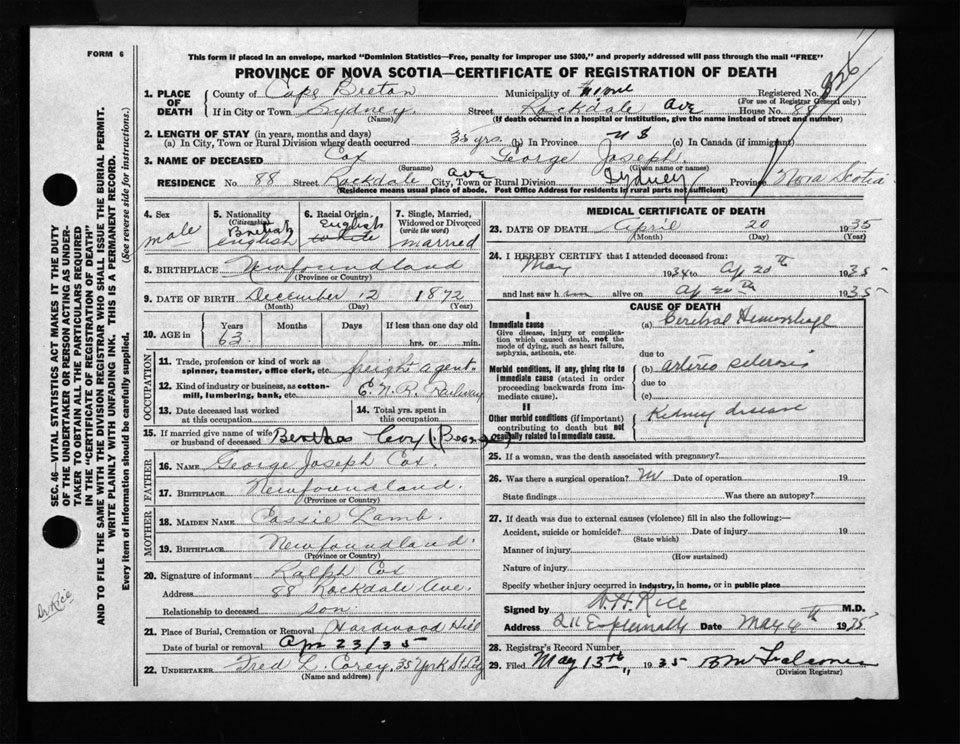 FORM 6
This form if placed in an envelope, marked "Dominion Statistics—Free, penalty for improper use $300," and properly addressed will pass through the mail "FREE"
PROVINCE OF NOVA SCOTIA—CERTIFICATE OF REGISTRATION OF DEATH
1. PLACE OF DEATH
County of Cape Breton Municipality of Registered No.
(For use of Registrar General only)
If in City or Town Sydney Street Rockdale Ave House No. 88
(Name) (If death occurred in a hospital or institution, give name instead of street and number)
2. LENGTH OF STAY (in years, months and days)
(a) In City, Town or Rural Division where death occurred 35 yrs. (b) In Province (c) In Canada (if immigrant)
3. NAME OF DECEASED Cox George Joseph
(Surname) (Given name or names)
RESIDENCE No 88 Street Rockdale Ave City, Town or Rural Division Sydney Province Nova Scotia
(Residence means usual place of abode. Post Office Address for residents of rural parts not sufficient)
4. Sex
male
5. Nationality
(Citizenship)
British
English
6. Racial Origin
English
white
7. Single, Married, Widowed or Divorced
(write the word)
married
8. BIRTHPLACE Newfoundland
(Province or Country)
9. DATE OF BIRTH December 12 1872
(Month) (Day) (Year)
10. AGE in
Years
63
Months
Days
If less than one day old
hrs. or min.
OCCUPATION
11. Trade, profession or kind of work as
spinner, teamster, office clerk, etc. freight agent
12. Kind of industry or business, as cotton-
mill, lumbering, bank, etc. C. N. R. Railway
13. Date deceased last worked
at this occupation
14. Total yrs. spent in
this occupation
15. If married give name of wife
or husband of deceased Bertha
FATHER
16. NAME George Joseph Cox.
17. BIRTHPLACE Newfoundland.
(Province or Country)
MOTHER
18. MAIDEN NAME Cassie Lamb.
19. BIRTHPLACE Newfoundland.
(Province or Country)
20. Signature of informant Ralph Cox
Address 88 Rockdale Ave.
Relationship to deceased son
21. Place of Burial, Cremation or Removal Hardwood Hill
Date of burial or removal Apr 23/35
22. UNDERTAKER Fred L. Corey, 35 York St. City
(Name and address)
MEDICAL CERTIFICATE OF DEATH
23. DATE OF DEATH April 20 1935
(Month) (Day) (Year)
24. I HEREBY CERTIFY that I attended deceased from:
May 1934 to Ap 20th 1935
and last saw h alive on Ap 20th 1935
CAUSE OF DEATH
I
Immediate cause
Give disease, injury or complica-
tion which caused death, not the
mode of dying, such as heart failure,
asphyxia, asthenia, etc.
(a) Cerebral Hemorrhage
due to
Morbid conditions, if any, giving rise to
immediate cause (stated in order
proceeding backwards from im-
mediate cause).
(b) arterio sclerosis
due to
(c)
II
Other morbid conditions (if important)
contributing to death but not
causally related to immediate cause.
Kidney disease
25. If a woman, was the death associated with pregnancy?
26. Was there a surgical operation? Date of operation 19
State findings Was there an autopsy?
27. If death was due to external causes (violence) fill in also the following:—
Accident, suicide or homicide? Date of injury 19
(State which)
Manner of injury
(How sustained)
Nature of injury
Specify whether injury occurred in industry, in home, or in public place
Signed by Rice M.D.
Address 211 Esplanade Date May 4th
28. Registrar's Record Number
29. Filed May 13th, 1935
(Division Registrar)
SEC. 46—VITAL STATISTICS ACT MAKES IT THE DUTY
OF THE UNDERTAKER OR PERSON ACTING AS UNDER-
TAKER TO OBTAIN ALL THE PARTICULARS REQUIRED
IN THE "CERTIFICATE OF REGISTRATION OF DEATH"
AND TO FILE THE SAME WITH THE DIVISION REGISTRAR WHO SHALL ISSUE THE BURIAL PERMIT.
WRITE PLAINLY WITH UNFADING INK. THIS IS A PERMANENT RECORD.
Every item of information should be carefully supplied. (See reverse side for instructions.)
Dr Rice